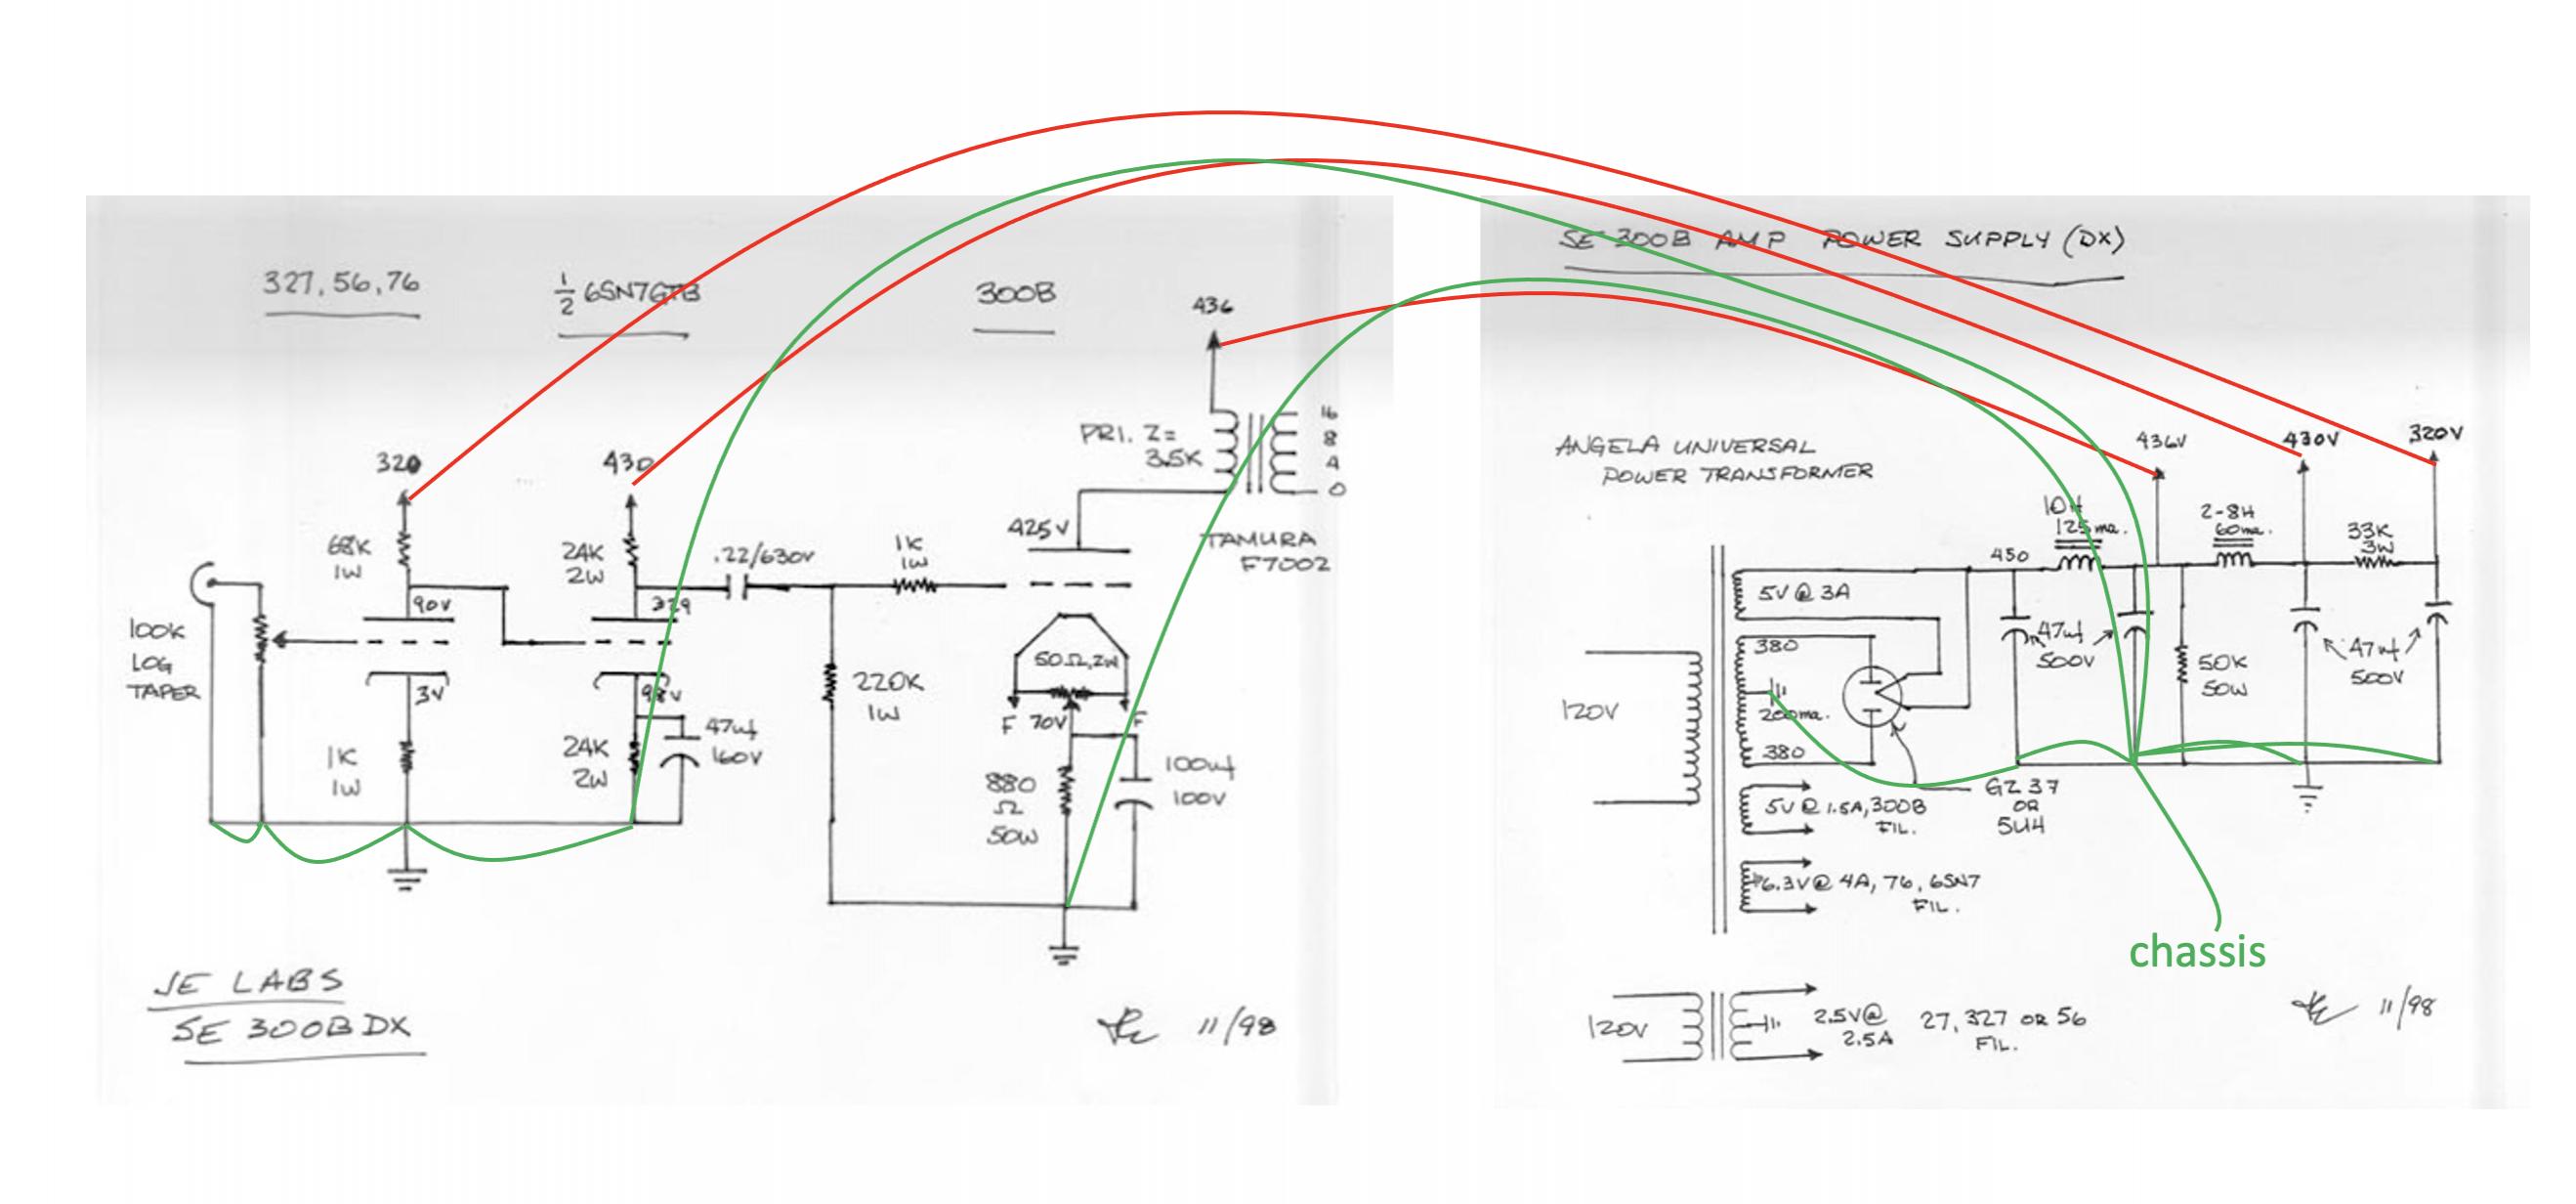 327, 56, 76
1/2 6SN7GTB
300B
436
PRI. Z=
3.5K
16
8
4
0
TAMURA
F7002
320
430
68K
1W
90V
24K
2W
.22/630V
1K
1W
425V
100K
LOG
TAPER
3V
1K
1W
24K
2W
47uf
160V
220K
1W
50Ω, 2W
F
70V
F
880
Ω
50W
100uf
100V
JE LABS
SE 300B DX
11/98
SE 300B AMP POWER SUPPLY (DX)
ANGELA UNIVERSAL
POWER TRANSFORMER
436V
430V
320V
450
10H
125ma.
2-8H
60ma.
33K
3W
5V @ 3A
380
200ma.
380
120V
47uf
500V
50K
50W
47uf
500V
GZ37
OR
5U4
5V @ 1.5A, 300B
FIL.
6.3V @ 4A, 76, 6SN7
FIL.
chassis
120V
2.5V@
2.5A
27, 327 OR 56
FIL.
11/98